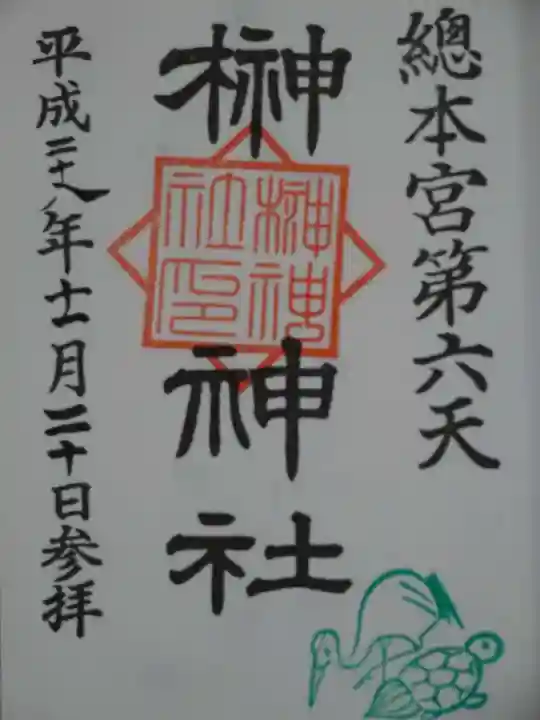 總本宮第六天
榊神社
榊神社印
平成二十八年十一月二十日参拝